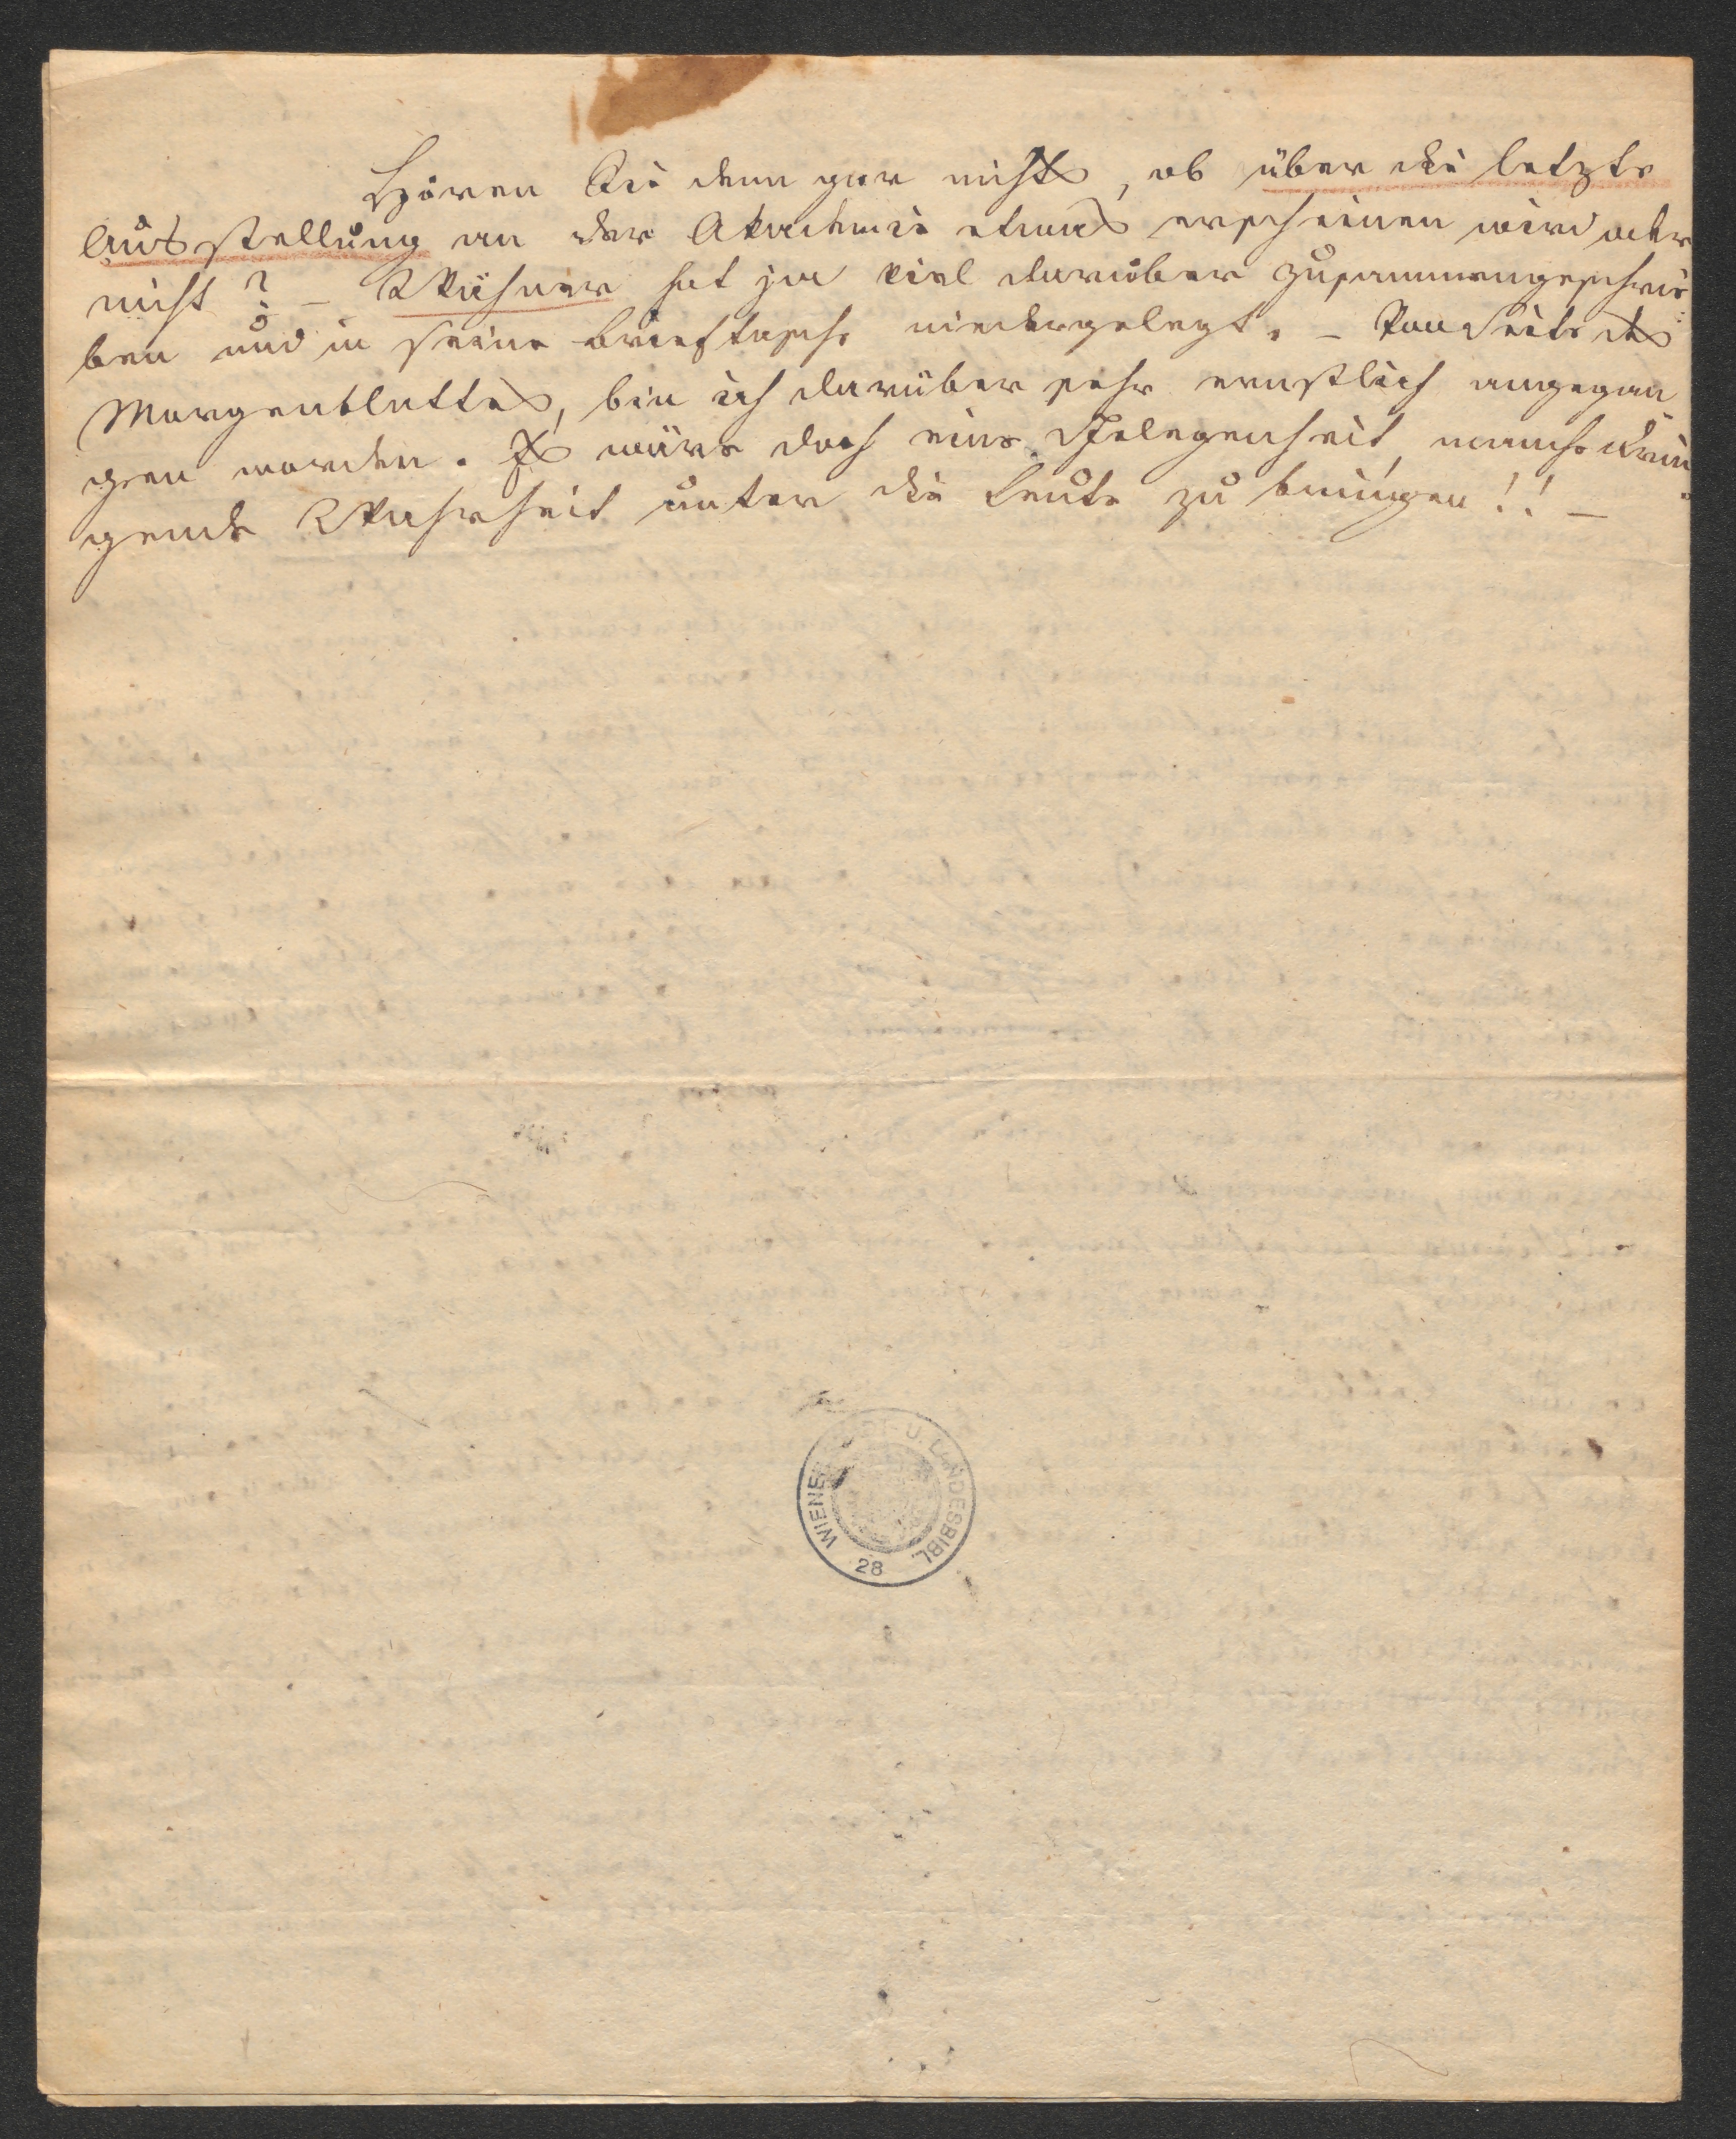 Hören Sie denn gar nichts, ob über die letzte
Ausstellung an der Akademie etwas erscheinen wird oder
nicht? – Wähner hat ja viel darüber zusammengeschrie
ben und in seine Brieftasche niedergelegt. – Von Seite des
Morgenblattes, bin ich darüber sehr ernstlich angegan
gen worden. Es wäre doch eine Gelegenheit, manche drin
gende Wahrheit unter die Leute zu bringen!! –
WIENER STADT- U. LANDESBIBL.
28